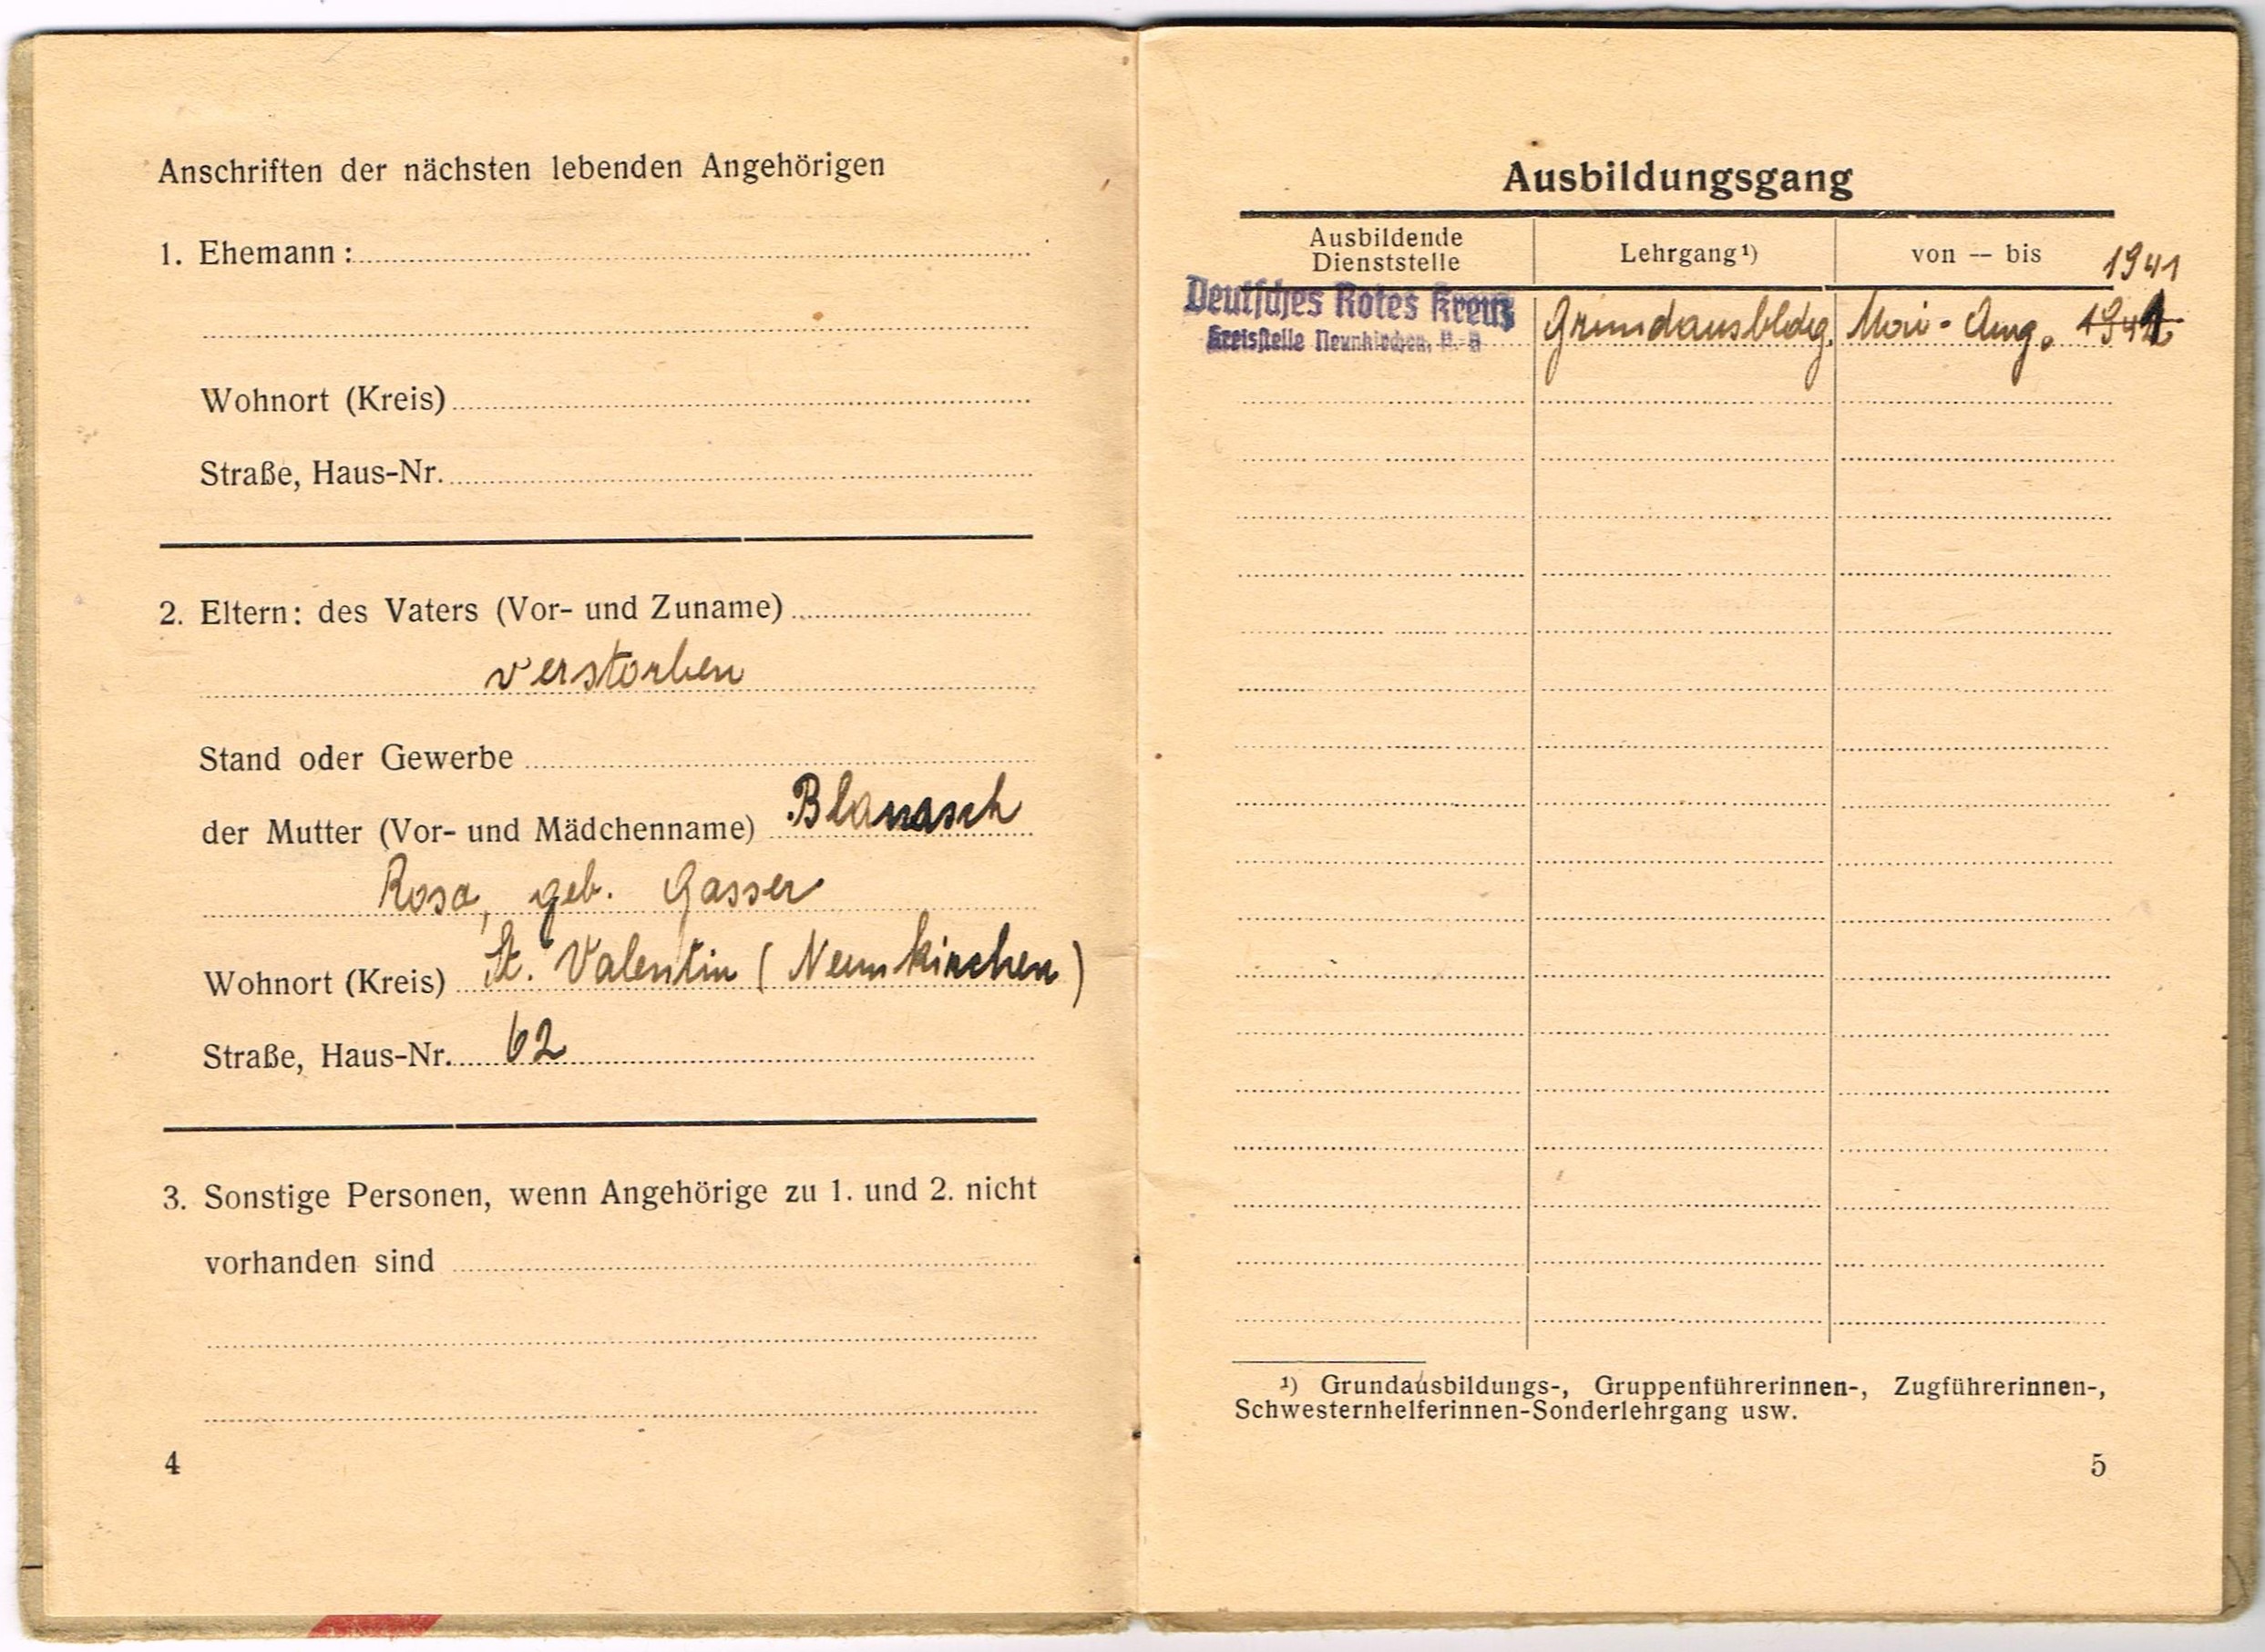 Anschriften der nächsten lebenden Angehörigen
1. Ehemann:
Wohnort (Kreis)
Straße, Haus-Nr.
2. Eltern: des Vaters (Vor- und Zuname)
verstorben
Stand oder Gewerbe
der Mutter (Vor- und Mädchenname) Blanasch
Rosa, geb. Gasser
Wohnort (Kreis) St. Valentin (Neunkirchen)
Straße, Haus-Nr. 62
3. Sonstige Personen, wenn Angehörige zu 1. und 2. nicht
vorhanden sind
4
Ausbildungsgang
Ausbildende
Dienststelle
Lehrgang¹)
von — bis
1941
Deutsches Rotes Kreuz
Kreisstelle Neunkirchen, N.-D
Grundausbldg. Mai - Aug. 1942
¹) Grundausbildungs-, Gruppenführerinnen-, Zugführerinnen-,
Schwesternhelferinnen-Sonderlehrgang usw.
5